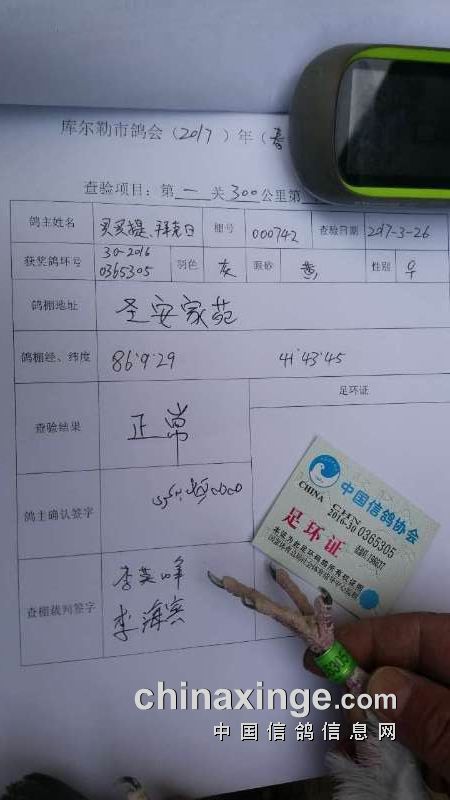 库尔勒市鸽会（2017）年（春
查验项目：第一关300公里第
鸽主姓名 买买提、拜克日 棚号 000742 查验日期 2017-3-26
获奖鸽环号 30-2016 0365305 羽色 灰 眼砂 黄 性别 ♀
鸽棚地址 圣安家苑
鸽棚经、纬度 86°9'29 41°43'45
足环证
查验结果 正常
鸽主确认签字
查棚裁判签字 李英峰
李海宾
中国信鸽协会
CHINA CHN
2016-30 0365305
足环证
chinaxinge.com
中国信鸽信息网